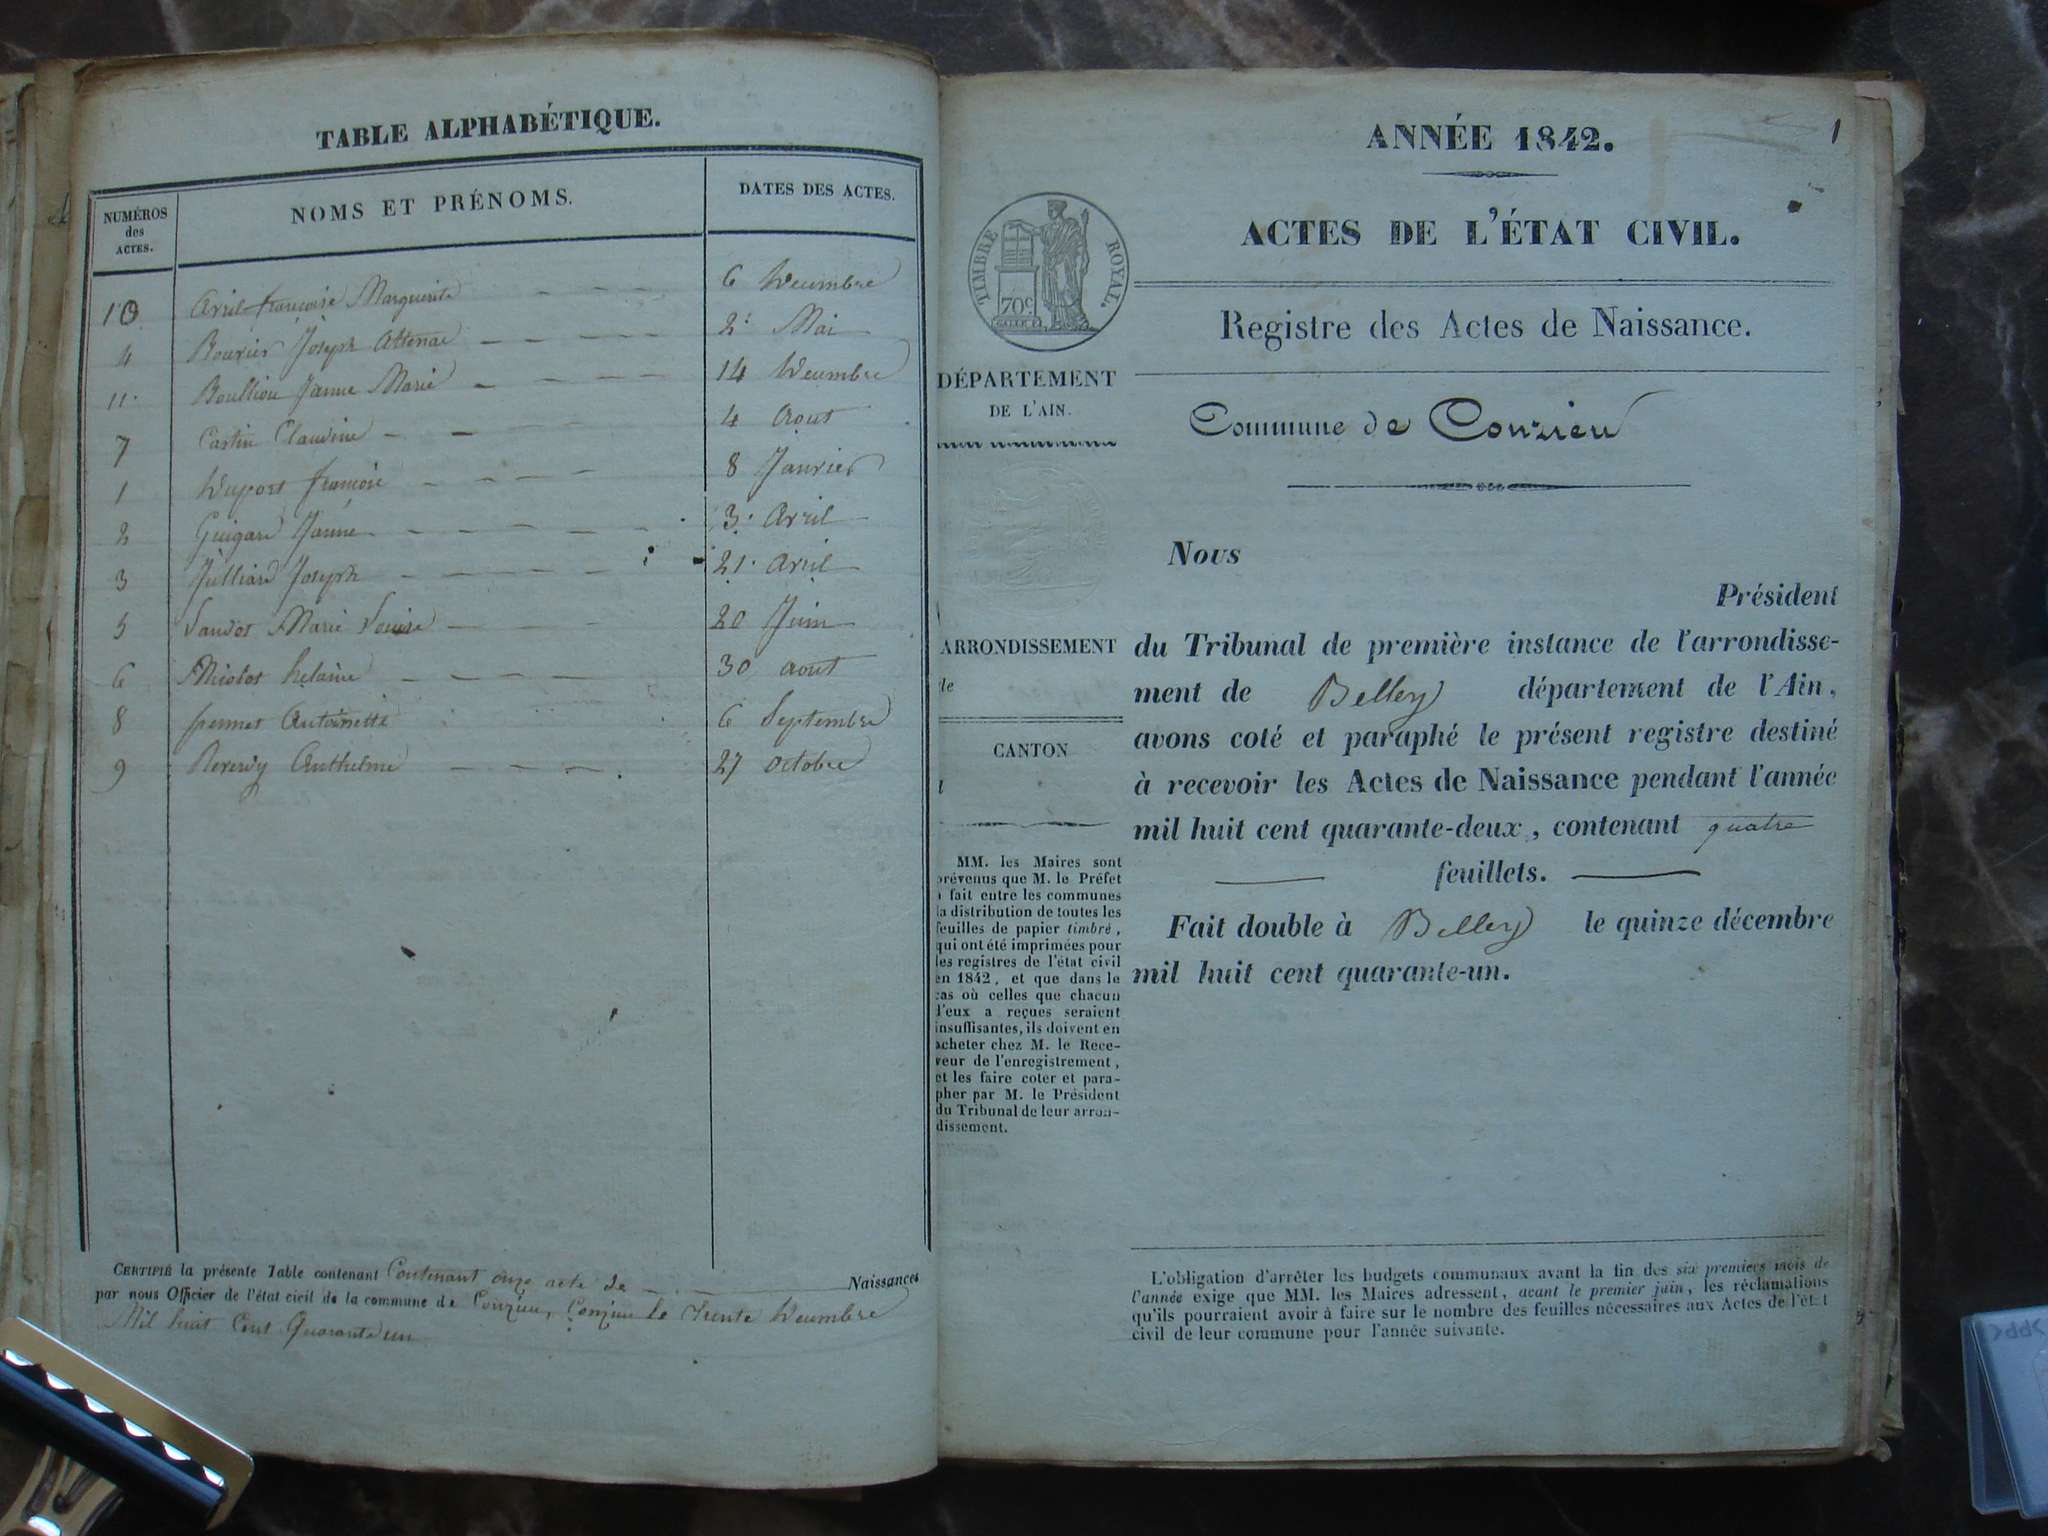 TABLE ALPHABÉTIQUE.
NUMÉROS des ACTES.
NOMS ET PRÉNOMS.
DATES DES ACTES.
10 Avril françoise Marguerite 6 Decembre
4 Bouvier Joseph 2 Mai
11 Janne Marie 14 Decembre
7 Castin Claudine 4 Aout
1 Duport françoise 8 Janvier
2 Guigard Janne 3 Avril
3 Julliard Joseph 21 Avril
5 Marie Louise 20 Juin
6 30 aout
8 Antoinette 6 Septembre
9 Anthelme 27 octobre
CERTIFIÉ la présente Table contenant Contenant onze acte de Naissances
par nous Officier de l'état civil de la commune de Conzieu, Conzieu le trente Decembre
Mil huit Cent Quarante un
1
ANNÉE 1842.
ACTES DE L'ÉTAT CIVIL.
TIMBRE ROYAL.
70c.
Registre des Actes de Naissance.
DÉPARTEMENT
DE L'AIN.
Commune de Conzieu
Nous
Président
ARRONDISSEMENT
CANTON
du Tribunal de première instance de l'arrondisse-
ment de Belley département de l'Ain,
avons coté et paraphé le présent registre destiné
à recevoir les Actes de Naissance pendant l'année
mil huit cent quarante-deux, contenant quatre
feuillets.
Fait double à Belley le quinze décembre
mil huit cent quarante-un.
MM. les Maires sont
prévenus que M. le Préfet
a fait entre les communes
la distribution de toutes les
feuilles de papier timbré,
qui ont été imprimées pour
les registres de l'état civil
en 1842, et que dans le
cas où celles que chacun
d'eux a reçues seraient
insuffisantes, ils doivent en
acheter chez M. le Rece-
veur de l'enregistrement,
et les faire coter et para-
pher par M. le Président
du Tribunal de leur arron-
dissement.
L'obligation d'arrêter les budgets communaux avant la fin des six premiers mois de
l'année exige que MM. les Maires adressent, avant le premier juin, les réclamations
qu'ils pourraient avoir à faire sur le nombre des feuilles nécessaires aux Actes de l'état
civil de leur commune pour l'année suivante.